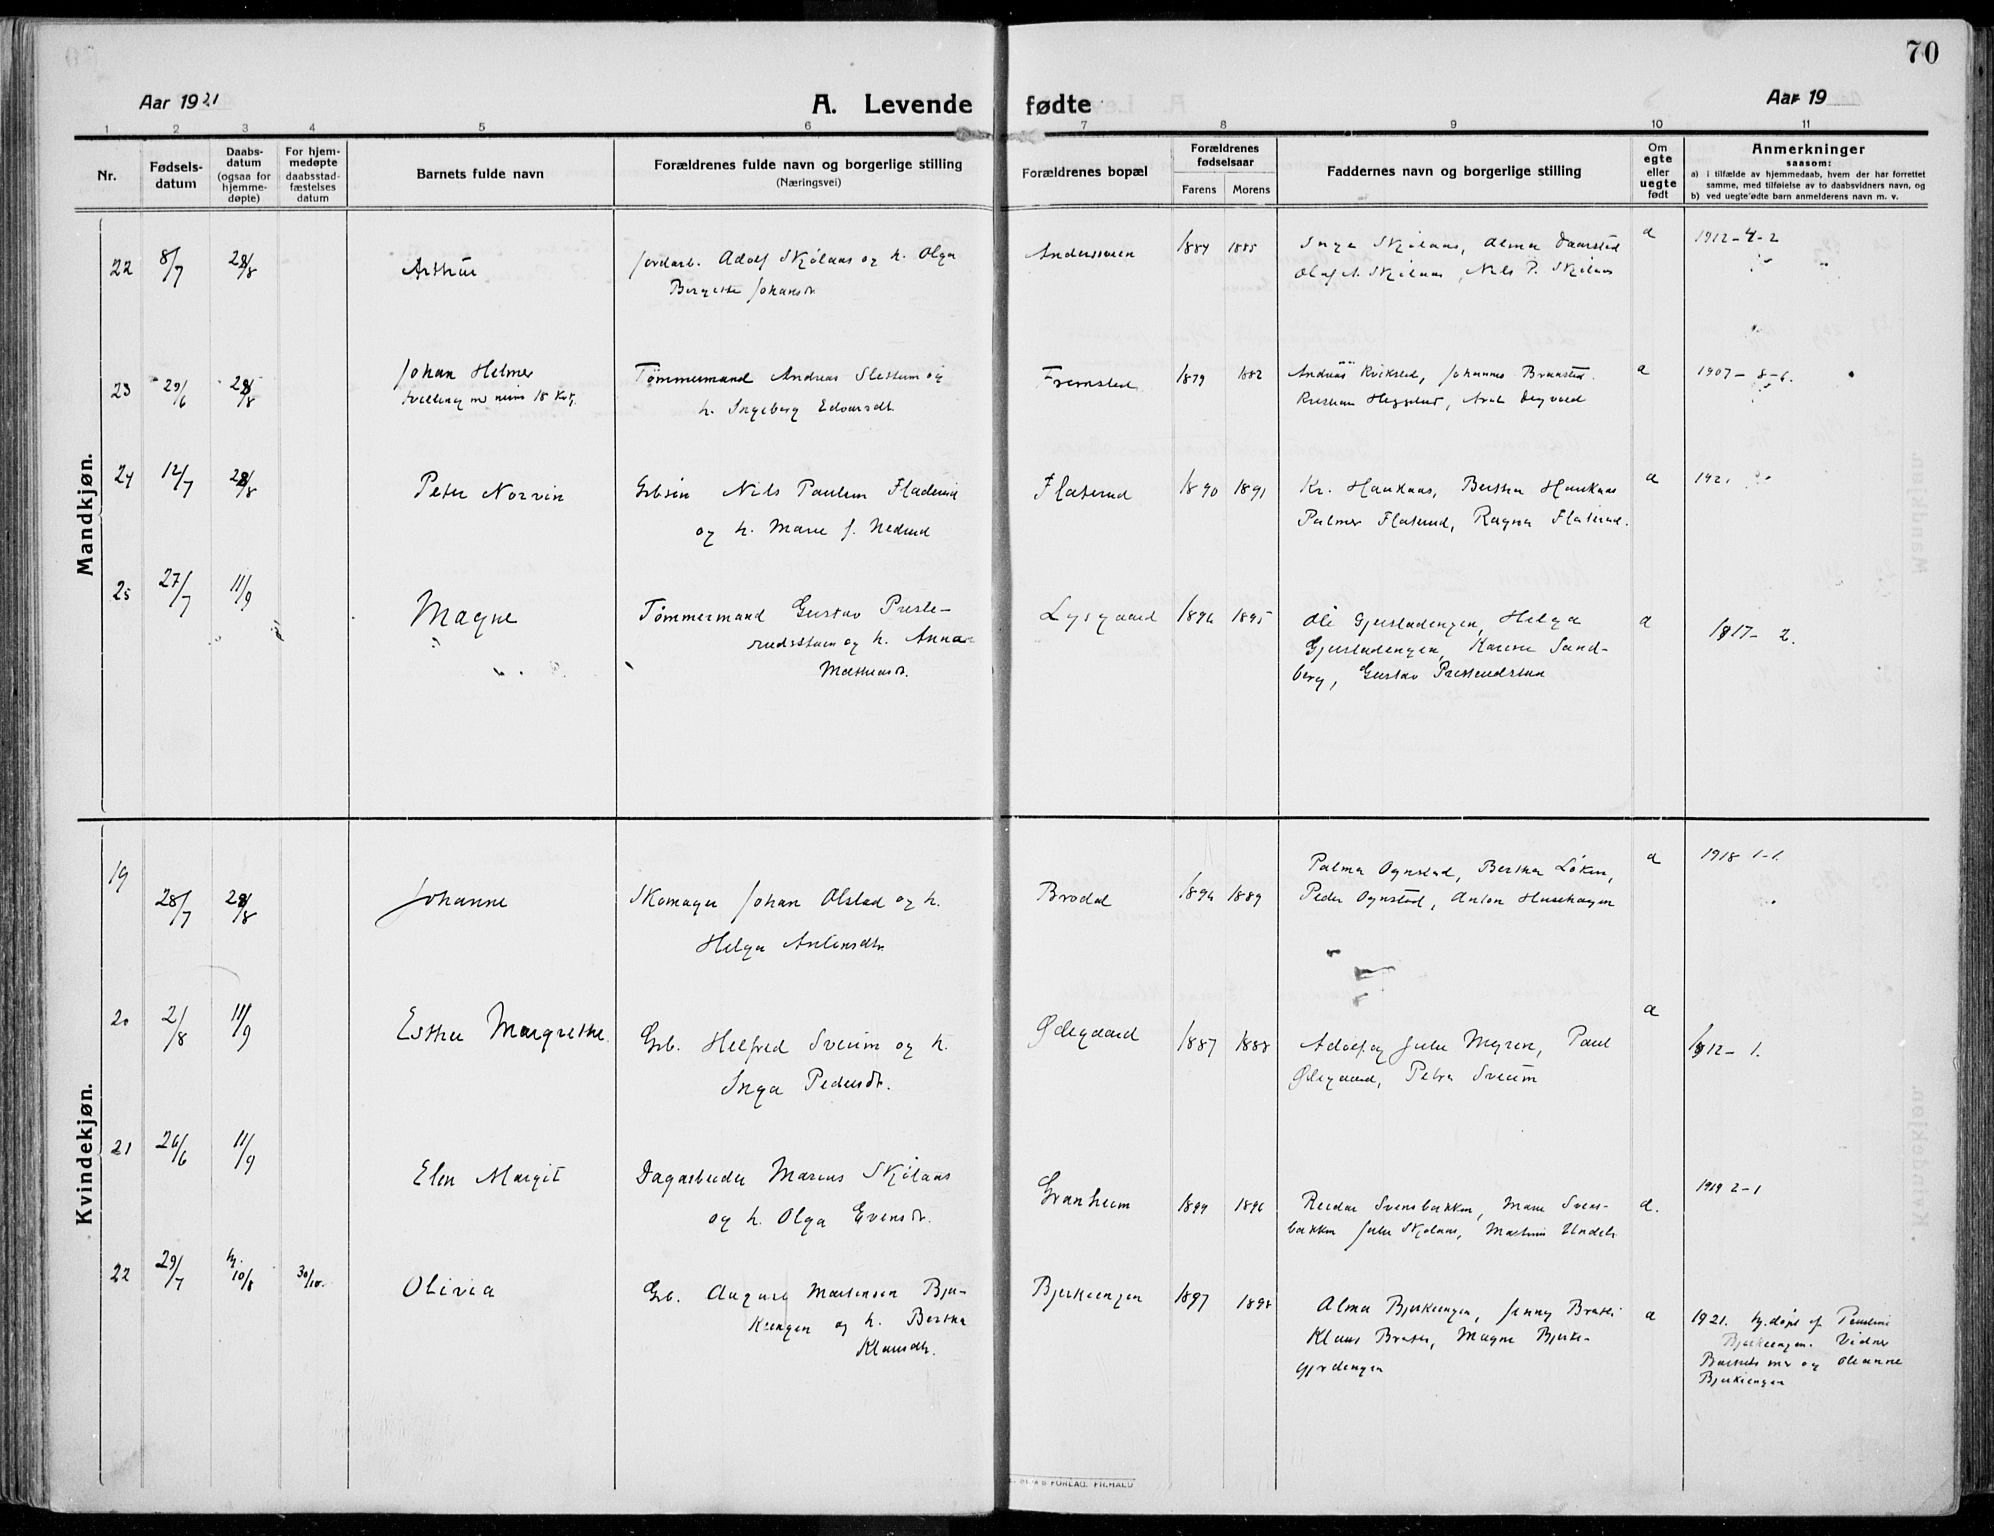 70
Aar 1921
A. Levende fødte
Aar 19
1 2 3 4 5 6 7 8 9 10 11
Nr.
Fødsels-
datum
Daabs-
datum
(ogsaa for
hjemme-
døpte)
For hjem-
medøpte
daabsstad-
fæstelses
datum
Barnets fulde navn
Forældrenes fulde navn og borgerlige stilling
(Næringsvei)
Forældrenes bopæl
Forældrenes
fødselsaar
Farens Morens
Faddernes navn og borgerlige stilling
Om
egte
eller
uegte
født
Anmerkninger
saasom:
a) i tilfælde av hjemmedaab, hvem der har forrettet
samme, med tilføielse av to daabsvidners navn, og
b) ved uegte fødte barn anmelderens navn m. v.
Mandkjøn.
22 8/7 28/8 Arthur Jordarb. Adolf Skjølaas og h. Olga
Bergitte Johansdr.
1884 1885 Inga Skjølaas, Alma
Olaf A. Skjølaas, Nils P. Skjølaas
a 1912-4-2
23 29/6 28/8 Johan Helmer
Tvilling m. no 18 Kvk.
Tømmermand Andreas Slettum og
h. Ingeborg Edvardsdr.
Fremstad 1879 1882 Andreas Kvikstad, Johannes
a 1907-8-6.
24 12/7 28/8 Peter Norvin Grbsøn Nils Paulsen Flaterud
og h. Marie f. Nederud
Flaterud 1890 1891 Kr. Haukaas, Bertha Haukaas
Palmer Flaterud, Ragna Flaterud.
a 1921
25 27/7 11/9 Magne Tømmermand Gustav Preste-
rudsstuen og h. Anna
Mathiasdr.
Lysgaard 1896 1895 Ole Gjerstadengen, Helga
Gjerstadengen, Karene Sand-
berg, Gustav Presterudstuen
a 1917-2.
Kvindekjøn.
19 28/7 28/8 Johanne Skomager Johan Olstad og h.
Helga Antonsdtr.
Brodal 1896 1889 Palma Ognstad, Bertha Løken,
Peder Ognstad, Anton Husehagen
a 1918 1-1.
20 2/8 11/9 Esther Margrethe Grb. Helfred Sveum og h.
Inga Pedersdr.
Ødegaard 1887 1888 Adolf og Julie Myren, Paul
Ødegaard, Petra Sveum
a 1912-1.
21 26/6 11/9 Elen Margit Dagarbeider Marius Skjølaas
og h. Olga Evensdr.
Granheim 1899 1896 Reidar Svensbakken, Marie Svens-
bakken Julie Skjølaas,
a. 1919 2-1
22 29/7 hj. 10/8 30/10. Olivia Grb. August Martensen Bjer-
keengen og h. Bertha
Klausdtr.
Bjerkeengen 1897 1898 Alma Bjerkeengen, Jenny Bratli
Klaus Bratli, Magne Bjerke-
gjerdengen
a 1921. hj.døpt af Pauline
Bjerkeengen. Vidner
Barnets mor og Oleanne
Bjerkeengen